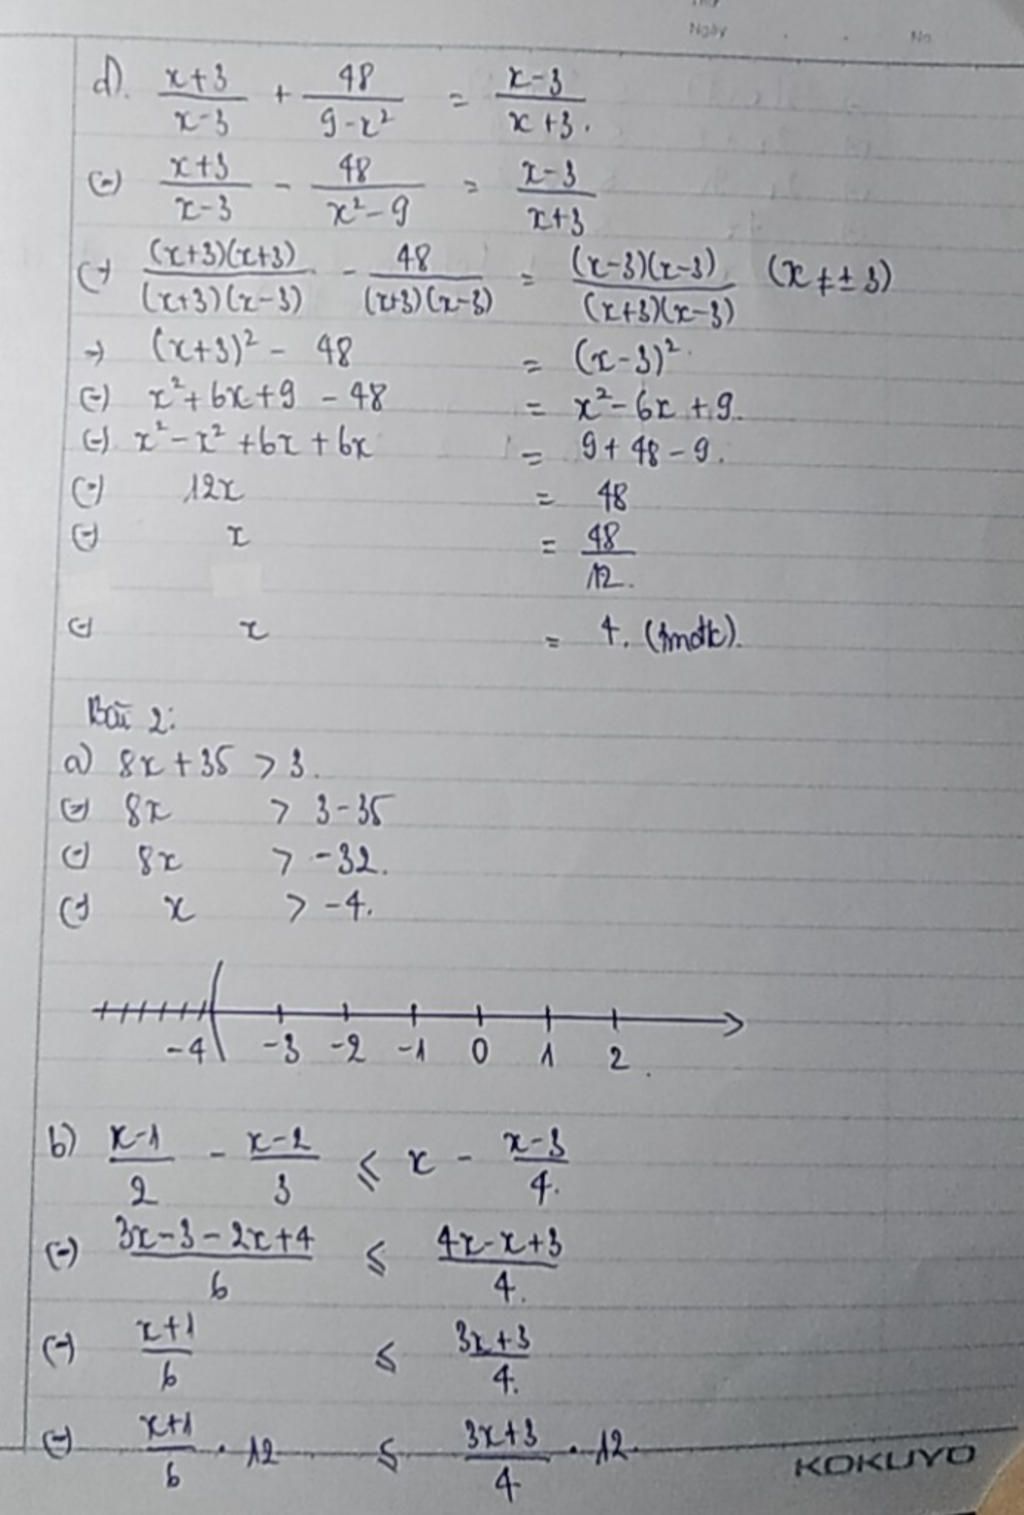 Ngày No
d). x+3/x-3 + 48/9-x² = x-3/x+3.
(=) x+3/x-3 - 48/x²-9 = x-3/x+3
(=) (x+3)(x+3)/(x+3)(x-3) - 48/(x+3)(x-3) = (x-3)(x-3)/(x+3)(x-3) (x ≠ ± 3)
=) (x+3)² - 48 = (x-3)².
(=) x²+6x+9 - 48 = x²-6x+9.
(=) x²-x²+6x+6x = 9+48-9.
(=) 12x = 48
(=) x = 48/12.
(=) x = 4. (tmđk).
Bài 2:
a) 8x+35 > 3.
(=) 8x > 3-35
(=) 8x > -32.
(=) x > -4.
-4 -3 -2 -1 0 1 2
b) x-1/2 - x-2/3 ⩽ x - x-3/4.
(=) 3x-3-2x+4/6 ⩽ 4x-x+3/4.
(=) x+1/6 ⩽ 3x+3/4.
(=) x+1/6 . 12 ⩽ 3x+3/4 . 12.
KOKUYO